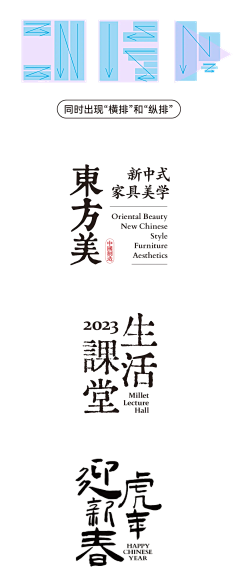 同时出现“横排”和“纵排”
東方美
新中式
家具美学
Oriental Beauty
New Chinese
Style
Furniture
Aesthetics
2023
生活
課堂
Millet
Lecture
Hall
迎新春
虎年
HAPPY
CHINESE
YEAR